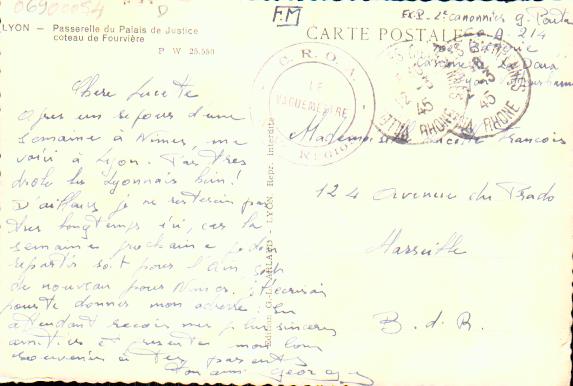 06900054
F.M
LYON — Passerelle du Palais de Justice
coteau de Fourvière
P W 25.550
CARTE POSTALE
Exp. 2e canonnier g.
214
Lyon
C.R.O.A.
LE
VAGUEMESTRE
REGION
12
45
VILLEURBANNE
RHONE
Chère Lucette
Après un séjour d'une
semaine à Nîmes, me
voici à Lyon. Pas très
drôle les Lyonnais hein!
D'ailleurs je ne resterai pas
très longtemps ici, car la
semaine prochaine je dois
repartir soit pour l'Ain, soit
de nouveau pour Nîmes. J'écrirai
pour te donner mon adresse. En
attendant reçois mes plus sincères
amitiés et présente mon bon
souvenir à tes parents
Ton ami Georges
Edition G.L. ARLAUD - LYON Repr. interdite
Mademoiselle Lucette François
124 Avenue du Prado
Marseille
B. d. R.